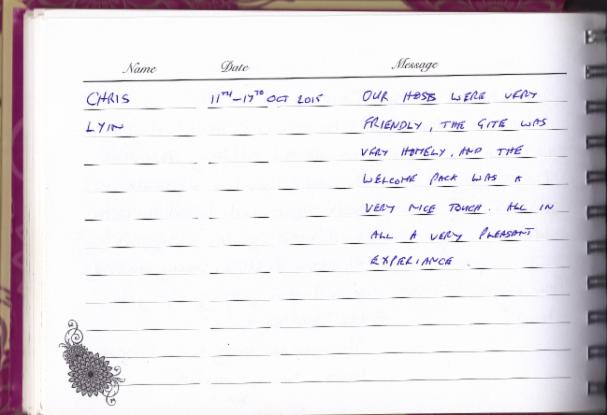 Name Date Message
CHRIS 11TH-17TH OCT 2015 OUR HOSTS WERE VERY
LYIN FRIENDLY, THE GITE WAS
VERY HOMELY, AND THE
WELCOME PACK WAS A
VERY NICE TOUCH. ALL IN
ALL A VERY PLEASANT
EXPERIANCE.